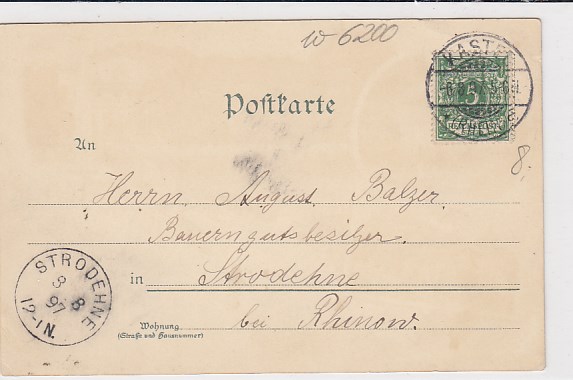 W 6200
KASTEL
5
Postkarte
An
8.
Herrn August Balzer
Bauerngutsbesitzer
in Strodehne
bei Rhinow.
Wohnung
(Straße und Hausnummer)
STRODEHNE
3 8
97
12-1N.